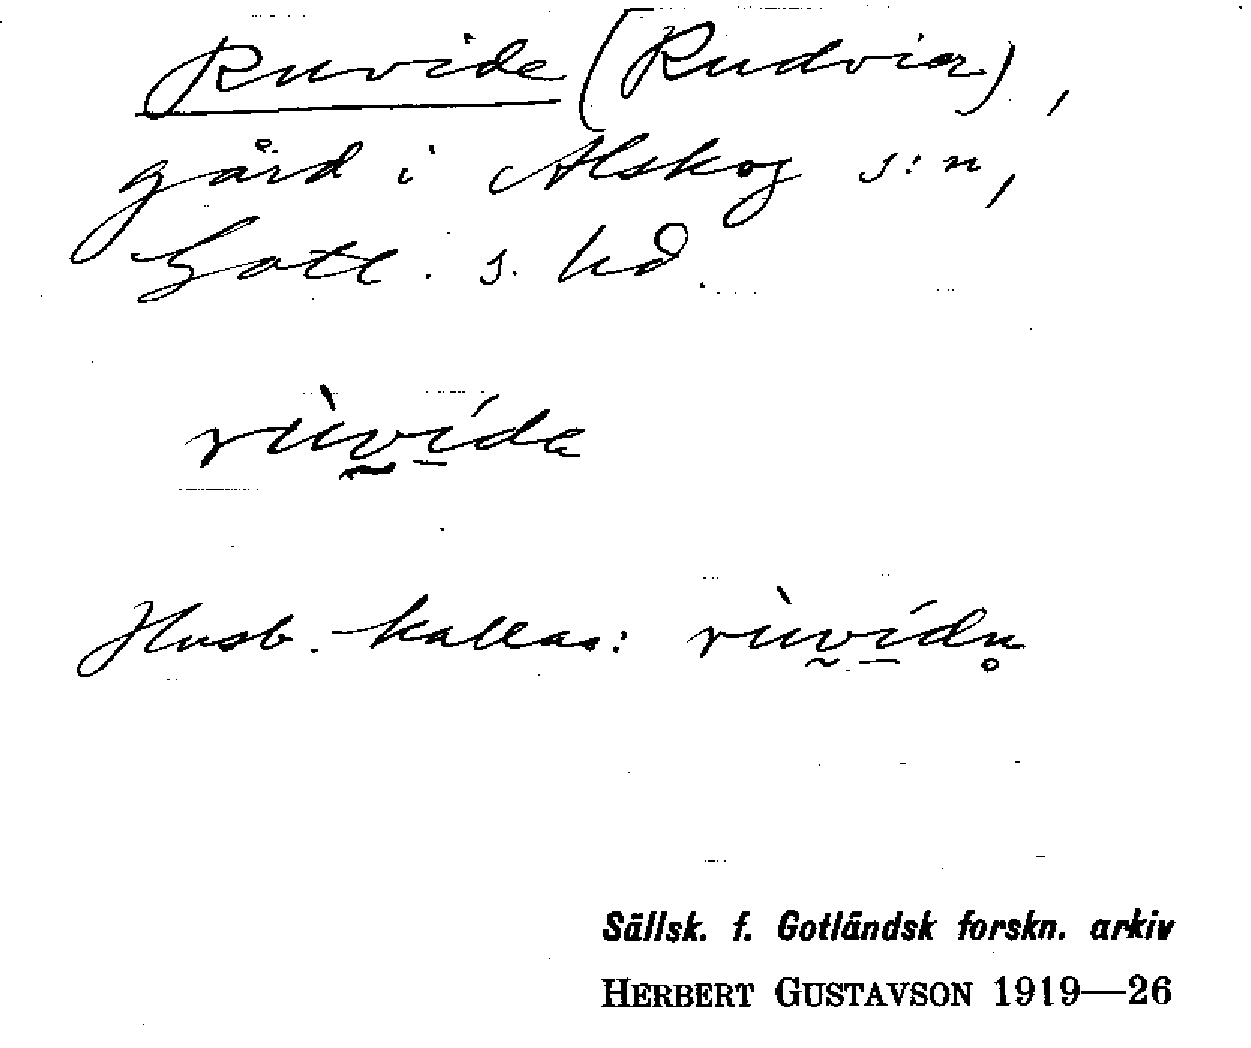 Ruvide (Rudvier),
gård i Alskog s:n,
Gotl. s. hd.
rùv̰í̱de
Husb. kallas: rùv̰í̱dn̥
Sällsk. f. Gotländsk forskn. arkiv
HERBERT GUSTAVSON 1919—26